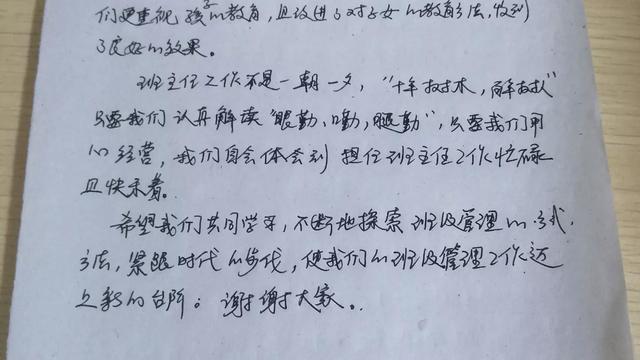 们更重视孩子的教育，且改进了对子女的教育方法，收到
了良好的效果。
班主任工作不是一朝一夕，“十年树木，百年树人”
只要我们认真解读“眼勤、口勤，腿勤”，只要我们用
心经营，我们自会体会到担任班主任工作忙碌
且快乐着。
希望我们共同学习，不断地探索班级管理的方式
方法，紧跟时代的步伐，使我们的班级管理工作迈
上新的台阶。谢谢大家。